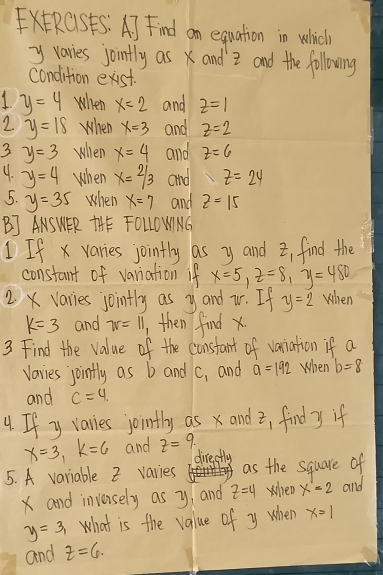 EXERCISES: A] Find an equation in which
y varies jointly as x and z and the following
condition exist.
1. y = 4 when x = 2 and z = 1
2. y = 18 when x = 3 and z = 2
3 y = 3 when x = 4 and z = 6
4. y = 4 when x = 2/3 and z = 24
5. y = 35 when x = 7 and z = 15
B] ANSWER THE FOLLOWING
1 If x varies jointly as y and z, find the
constant of variation if x = 5, z = 8, y = 480
2. x varies jointly as y and w. If y = 2 when
k = 3 and w = 11, then find x.
3 Find the value of the constant of variation if a
varies jointly as b and c, and a = 192 when b = 8
and c = 4.
4. If y varies jointly as x and z, find y if
x = 3, k = 6 and z = 9.
5. A variable z varies directly as the square of
x and inversely as y, and z = 4 when x = 2 and
y = 3, what is the value of y when x = 1
and z = 6.